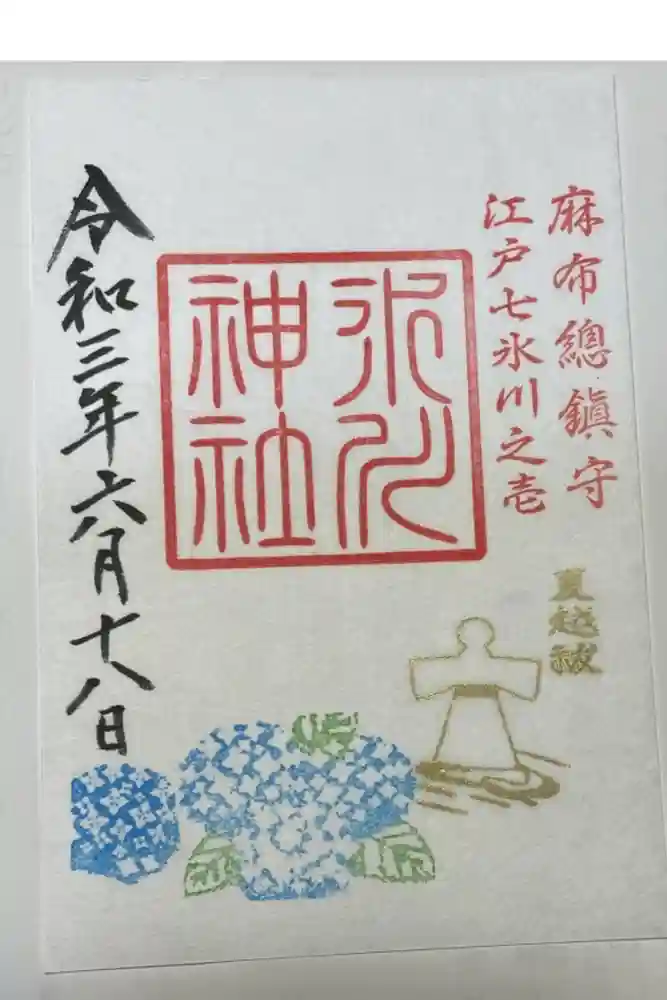 麻布總鎮守
江戸七氷川之壱
夏越祓
氷川
神社
令和三年六月十八日